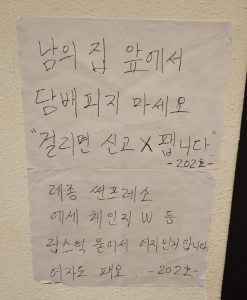 남의 집 앞에서
담배피지 마세요
"걸리면 신고 X 팹니다"
-202호-
레종 썬프레소
에세 체인지 W 등
립스틱 묻어서 여자인지 압니다
여자도 패요. -202호-